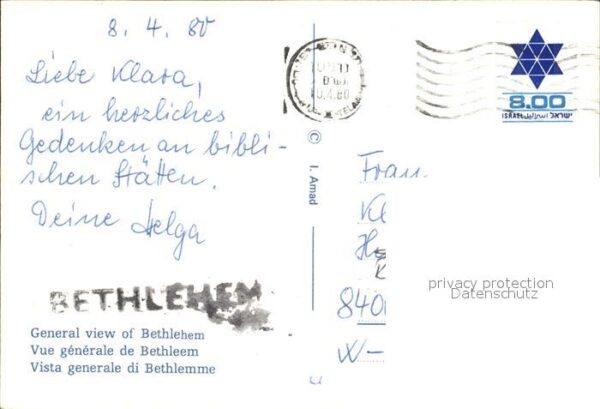 8. 4. 80
Liebe Klara,
ein herzliches
Gedenken an bibli-
schen Stätten.
Deine Helga
BETHLEHEM
General view of Bethlehem
Vue générale de Bethleem
Vista generale di Bethlemme
© I. Amad
8.00
ISRAEL اسرائيل ישראל
Frau
Kl
840
W-
privacy protection
Datenschutz